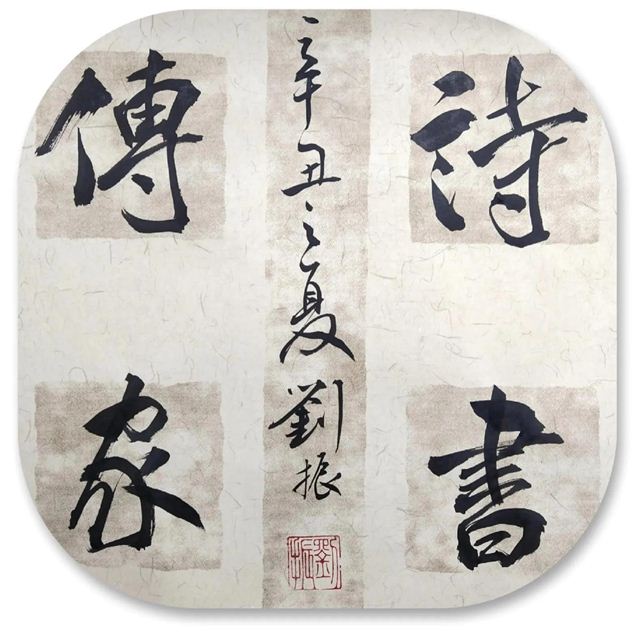 詩書
傳家
辛丑之夏劉振
劉振